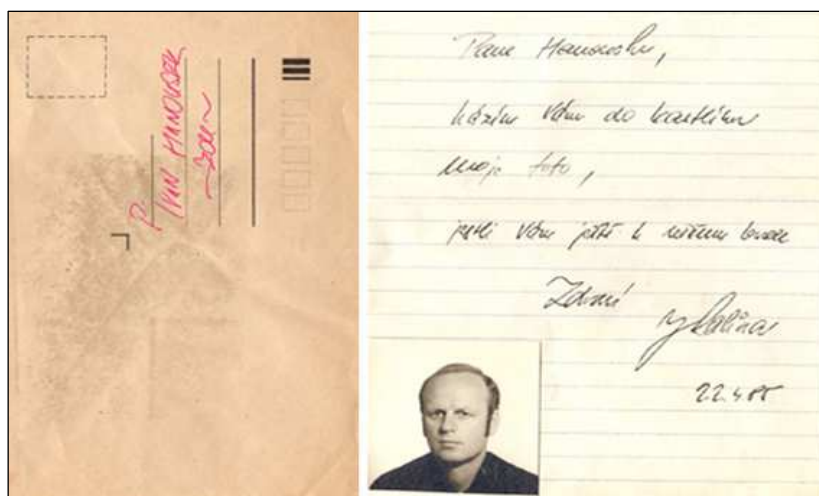 P.
IVAN HANOUSEK
Pane Hanousku,
házím Vám do kastlíku
moje foto,
jestli Vám ještě k něčemu bude
Zdraví
22.4.85